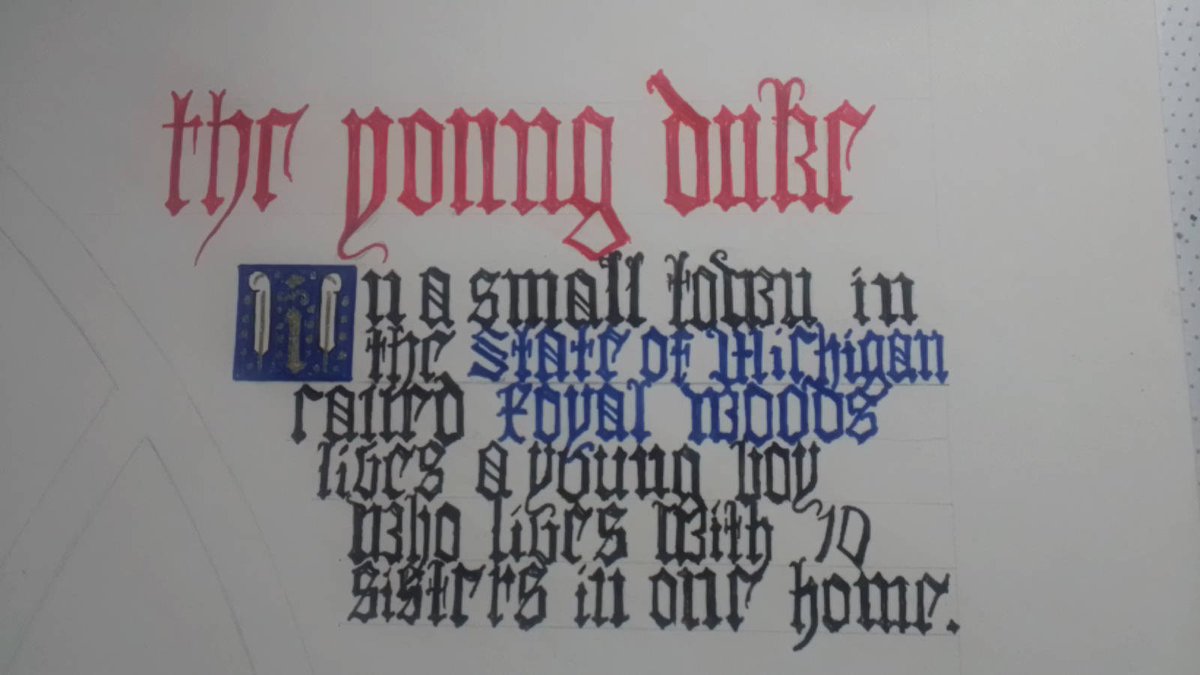 the young duke
in a small town in
the State of Michigan
called Royal Woods
lives a young boy
who lives with 10
sisters in one home.